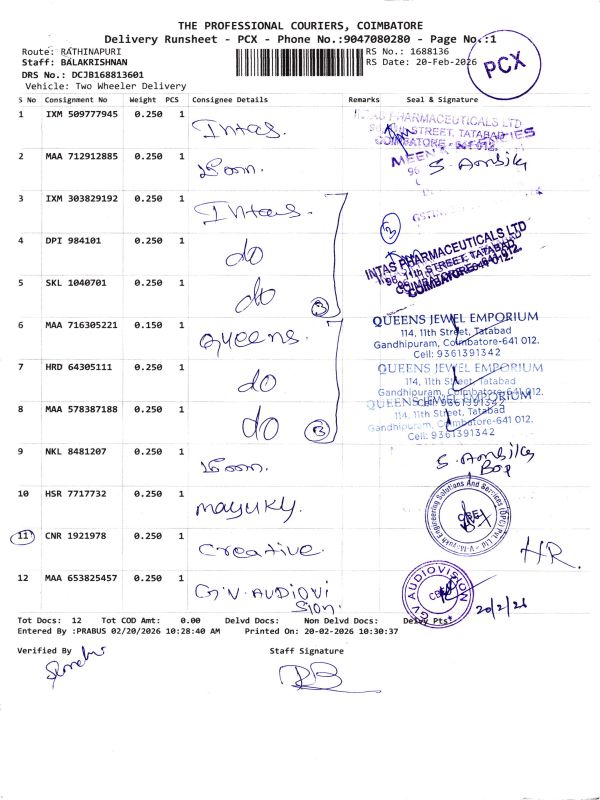 THE PROFESSIONAL COURIERS, COIMBATORE
Delivery Runsheet - PCX - Phone No.:9047080280 - Page No.:1
Route: RATHINAPURI
RS No.: 1688136
Staff: BALAKRISHNAN
RS Date: 20-Feb-2026
PCX
DRS No.: DCJB168813601
Vehicle: Two Wheeler Delivery
S No Consignment No Weight PCS Consignee Details Remarks Seal & Signature
1 IXM 509777945 0.250 1 Intas.
PHARMACEUTICALS LTD
STREET, TATABAD
COIMBATORE - 641 012.
2 MAA 712912885 0.250 1 S. Ambika
3 IXM 303829192 0.250 1 Intas.
4 DPI 984101 0.250 1 do
3
INTAS PHARMACEUTICALS LTD
96, 11th STREET, TATABAD
COIMBATORE-641 012.
5 SKL 1040701 0.250 1 do 3
6 MAA 716305221 0.150 1 Queens.
QUEENS JEWEL EMPORIUM
114, 11th Street, Tatabad
Gandhipuram, Coimbatore-641 012.
Cell: 9361391342
7 HRD 64305111 0.250 1 do
QUEENS JEWEL EMPORIUM
114, 11th Street, Tatabad
Gandhipuram, Coimbatore-641 012.
Cell: 9361391342
8 MAA 578387188 0.250 1 do 3
QUEENS JEWEL EMPORIUM
114, 11th Street, Tatabad
Gandhipuram, Coimbatore-641 012.
Cell: 9361391342
9 NKL 8481207 0.250 1 S. Ambika
10 HSR 7717732 0.250 1 mayuky.
Engineering Solutions And Services (OPC) Pvt. Ltd
11 CNR 1921978 0.250 1 Creative. HR.
12 MAA 653825457 0.250 1 G.V. AUDIOVI
SION.
GV AUDIOVISION
CBE
20/2/26
Tot Docs: 12 Tot COD Amt: 0.00 Delvd Docs: Non Delvd Docs: Delvy Pts:
Entered By :PRABUS 02/20/2026 10:28:40 AM Printed On: 20-02-2026 10:30:37
Verified By
Staff Signature